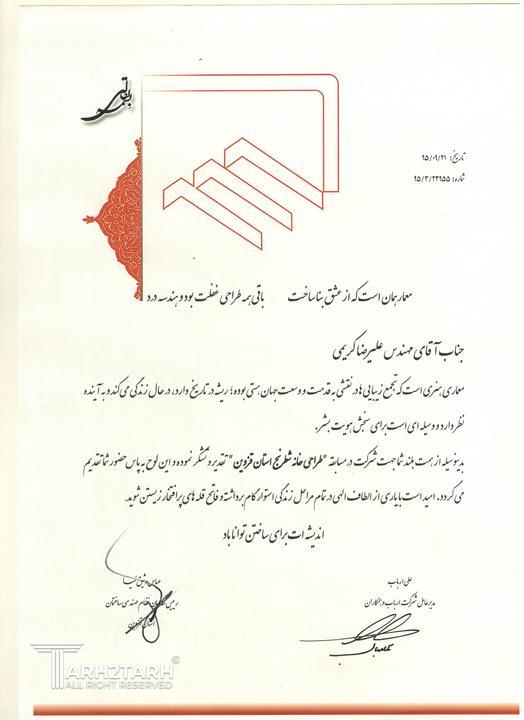 تاریخ: ۹۵/۰۹/۲۱
شماره: ۹۵/۳/۲۳۹۵۵
معمار همان است که از عشق بنا ساخت باقی همه طراحی غفلت بود و هندسه درد
جناب آقای مهندس علیرضا کریمی
معماری هنری است که تجمع زیبایی ها در نقشی به قدمت و وسعت جهان هستی بوده؛ ریشه در تاریخ دارد، در حال زندگی می کند و به آینده
نظر دارد و وسیله ای است برای سنجش هویت بشر.
بدینوسیله از همت بلند شما جهت شرکت در مسابقه "طراحی خانه شطرنج استان قزوین" تقدیر و تشکر نموده و این لوح به پاس حضور شما تقدیم
می گردد. امید است با یاری از الطاف الهی در تمام مراحل زندگی استوار گام برداشته و فاتح قله های پر افتخار زیستن شوید.
اندیشه ات برای ساختن توانا باد
علی ارباب
مدیرعامل شرکت ارباب و همکاران
عباس وثیق نیا
رییس سازمان نظام مهندسی ساختمان
استان قزوین
TARH2TARH©
ALL RIGHT RESERVED